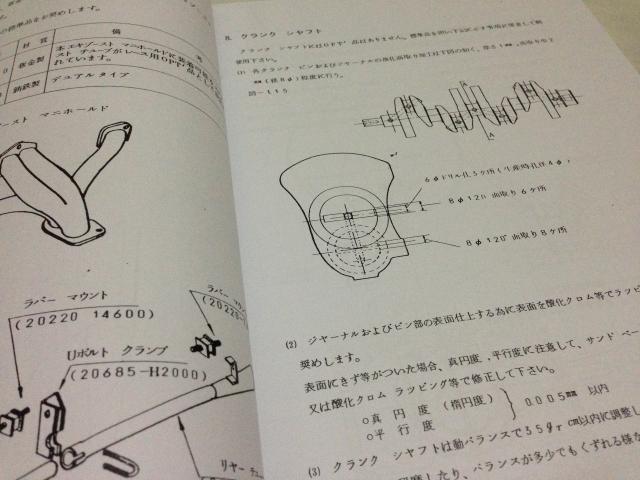 の標準品をお奨めします。
材 質
備
板金製
本エキゾースト マニホールドに装着
ースト チューブがレース用OPT
れています。
鋳鉄製
デュアルタイプ
ースト マニホールド
ラバー マウント
(20220 14600)
Uボルト クランプ
(20685-H2000)
ラバー マウ
リヤー チュ
8. クランク シャフト
クランク シャフトにはOPT品はありません。標準品を
使用下さい。
(1) 各クランク ピンおよびジャーナルの油孔面取り加工は下図の如く、
(径8φ)程度に行う。
図-115
A
A
6φドリル孔5ケ所(生産時孔径4φ)
8φ120°面取り6ケ所
8φ120°面取り8ケ所
(2) ジャーナルおよびピン部の表面仕上する為に表面を酸化クロム等でラッピ
奨めします。
表面にきず等がついた場合、真円度、平行度に注意して、サンド ペー
又は酸化クロム ラッピング等で修正して下さい。
○真 円 度 (楕円度)
○平 行 度
0.005mm 以内
(3) クランク シャフトは動バランスで35gr cm以内に調整し
したり、バランスが多少でもくずれる様な